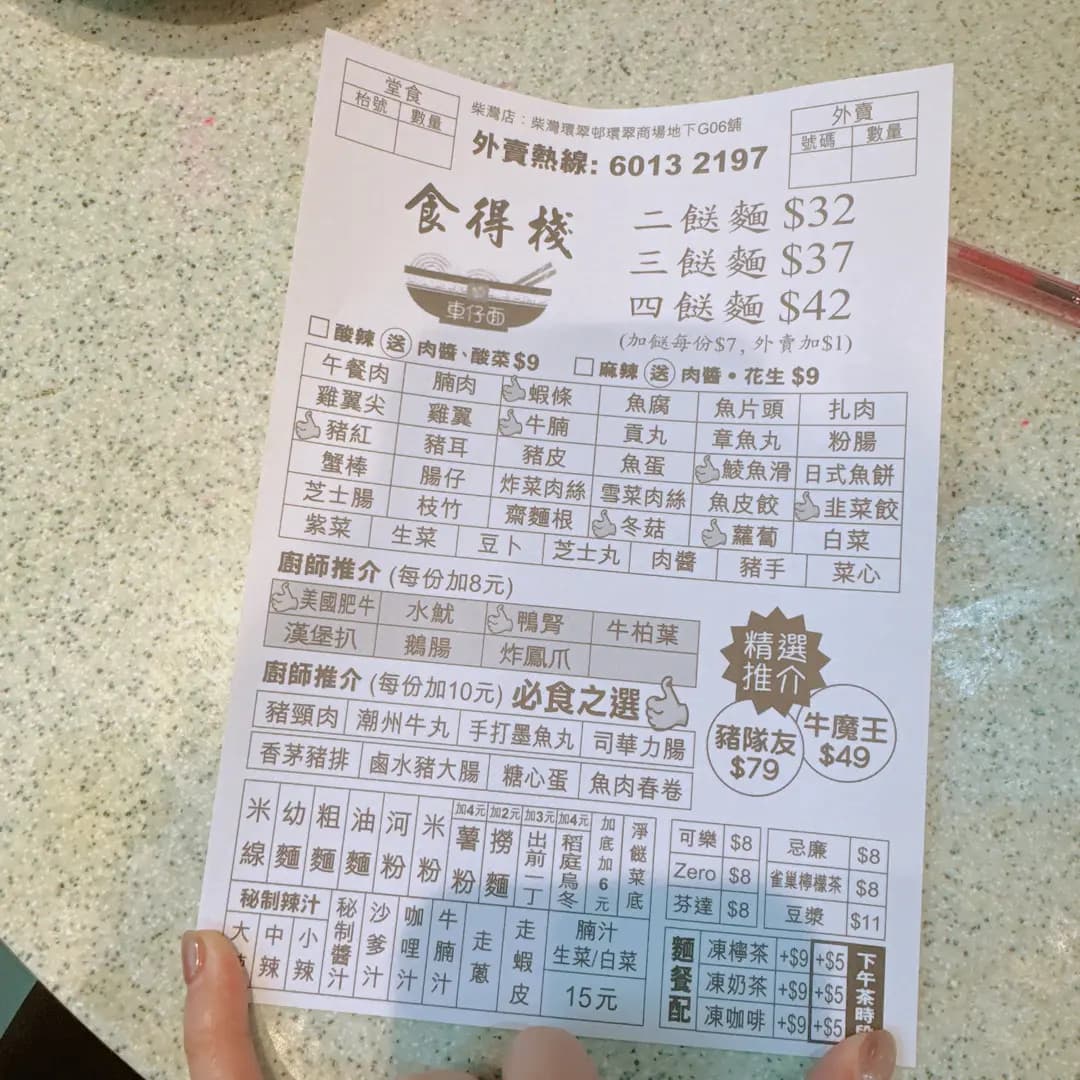 堂食
枱號 數量
柴灣店：柴灣環翠邨環翠商場地下G06舖
外賣熱線: 6013 2197
外賣
號碼 數量
食得棧
車仔面
二餸麵 $32
三餸麵 $37
四餸麵 $42
(加餸每份$7, 外賣加$1)
酸辣 送 肉醬、酸菜 $9
麻辣 送 肉醬・花生 $9
午餐肉 腩肉 蝦條 魚腐 魚片頭 扎肉
雞翼尖 雞翼 牛腩 貢丸 章魚丸 粉腸
豬紅 豬耳 豬皮 魚蛋 鯪魚滑 日式魚餅
蟹棒 腸仔 炸菜肉絲 雪菜肉絲 魚皮餃 韭菜餃
芝士腸 枝竹 齋麵根 冬菇 蘿蔔 白菜
紫菜 生菜 豆卜 芝士丸 肉醬 豬手 菜心
廚師推介 (每份加8元)
美國肥牛 水魷 鴨腎 牛柏葉
漢堡扒 鵝腸 炸鳳爪
廚師推介 (每份加10元) 必食之選
豬頸肉 潮州牛丸 手打墨魚丸 司華力腸
香茅豬排 鹵水豬大腸 糖心蛋 魚肉春卷
精選
推介
豬隊友
$79
牛魔王
$49
米線 幼麵 粗麵 油麵 河粉 米粉 加4元 薯粉 加2元 撈麵 加3元 出前一丁 加4元 稻庭烏冬 加底加6元 淨餸菜底
秘制辣汁
大 中辣 小辣 秘制醬汁 沙爹汁 咖哩汁 牛腩汁 走蔥 走蝦皮
腩汁
生菜/白菜
15元
可樂 $8
Zero $8
芬達 $8
忌廉 $8
雀巢檸檬茶 $8
豆漿 $11
麵餐配
凍檸茶 +$9 +$5
凍奶茶 +$9 +$5
凍咖啡 +$9 +$5
下午茶時